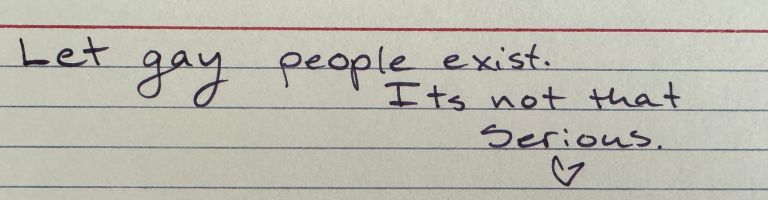 Let gay people exist.
Its not that
Serious.